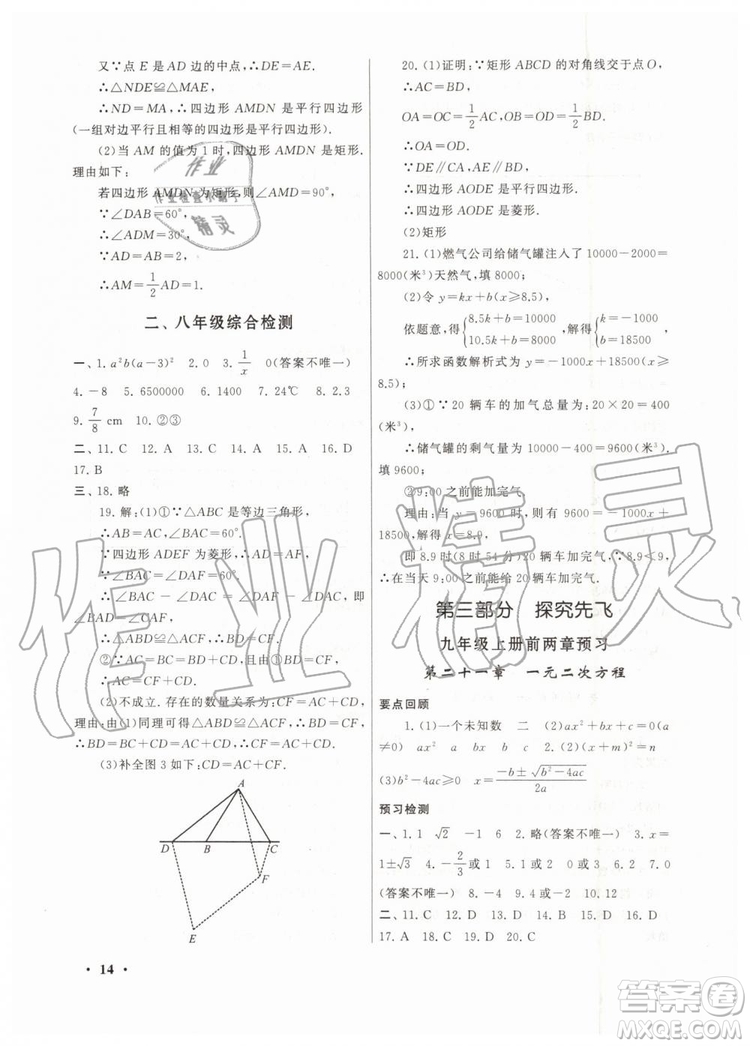 又∵点 E 是 AD 边的中点,∴DE=AE.
∴△NDE≌△MAE.
∴ND=MA,∴四边形 AMDN 是平行四边形
(一组对边平行且相等的四边形是平行四边形).
(2)当 AM 的值为 1 时,四边形 AMDN 是矩形.
理由如下:
若四边形 AMDN 为矩形,则∠AMD=90°,
∵∠DAB=60°,
∴∠ADM=30°,
∵AD=AB=2,
∴AM=1/2AD=1.
二、八年级综合检测
一、1.a²b(a-3)² 2.0 3.1/x 0(答案不唯一)
4.-8 5.6500000 6.1400 7.24℃ 8.2,3
9.7/8 cm 10.②③
二、11.C 12.A 13.C 14.C 15.A 16.D
17.B
三、18.略
19.解:(1)①∵△ABC 是等边三角形,
∴AB=AC,∠BAC=60°.
∵四边形 ADEF 为菱形,
∴AD=AF.
∵∠DAF=60°,∴∠BAC=∠DAF,
∴∠BAC-∠DAC=∠DAF-∠DAC,
即∠BAD=∠CAF.
∴△BAD≌△CAF,∴∠ADB=∠AFC.
②结论∠AFC=∠ACB+∠DAC 成立.
∵∠ADB=∠AFC,∠ADB=∠ACB+∠DAC,
∴∠AFC=∠ACB+∠DAC.
(2)不成立.存在的数量关系为:CF=AC+CD.
理由:由(1)同理可得△BAD≌△CAF,
∴BD=CF=BC+CD=AC+CD,∴CF=AC+CD.
(3)补全图 3 如下:CD=AC+CF.
A
D B C
F
E
• 14 •
20.(1)证明:∵矩形 ABCD 的对角线交于点 O,
∴AC=BD,
OA=OC=1/2AC,OB=OD=1/2BD,
∴OA=OD.
∵DE∥CA,AE∥BD,
∴四边形 AODE 是平行四边形.
∴四边形 AODE 是菱形.
(2)矩形
21.(1)燃气公司给储气罐注入了 10000-2000=
8000(米³)天然气,填 8000;
(2)令 y=kx+b(x≥8.5),
依题意,得{8.5k+b=10000 10.5k+b=8000 解得{k=-1000 b=18500
∴所求函数解析式为 y=-1000x+18500(x≥
8.5);
(3)①∵20 辆车的加气总量为:20×20=400
(米³),
∴储气罐的剩气量为:10000-400=9600(米³),
填 9600;
②9:00 之前能加完气.
理由:当 y=9600 时,则 9600=-1000x+
18500,得 x=8.9,
即 8.9时(8 时 54 分)20 辆车加完气,∵8.9<9,
∴在当天 9:00 之前能给 20 辆车加完气.
第三部分 探究先飞
九年级上册前两章预习
第二十一章 一元二次方程
要点回顾
1.(1)一个未知数 二 (2)ax²+bx+c=0(a
≠0) ax² a bx b c 2.(2)(x+m)²=n
(3)b²-4ac≥0 x=(-b±√(b²-4ac))/2a
预习检测
一、1.1 √2 -1 6 2.略(答案不唯一) 3.x=
1±√3 4.-2/3 5.x²-5x+6=0 6.2 7.0
(答案不唯一) 8.-4 9.-2 10.0
二、11.C 12.A 13.C 14.D 15.A 16.C
17.A 18.D 19.D 20.C